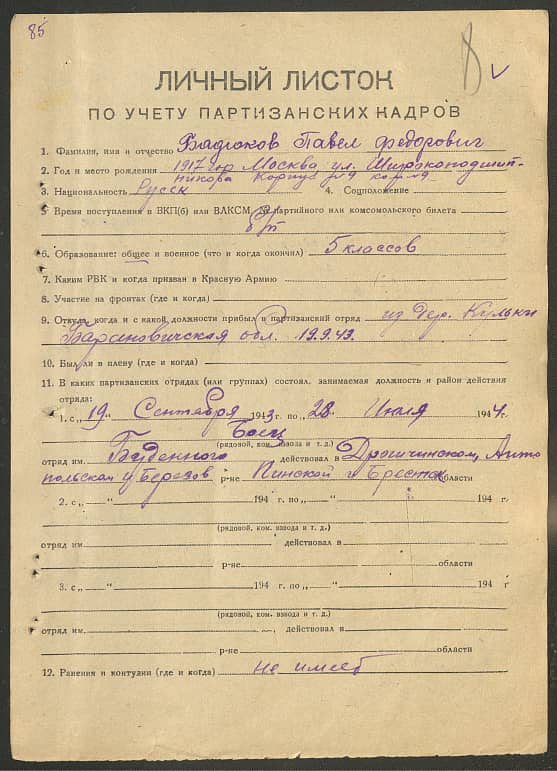 85
ЛИЧНЫЙ ЛИСТОК
ПО УЧЕТУ ПАРТИЗАНСКИХ КАДРОВ
1. Фамилия, имя и отчество Бадюков Павел Федорович
2. Год и место рождения 1917 год Москва ул. Широкоподшип-
никова корпус №9 ком №9
3. Национальность Русск 4. Соцположение
5 Время поступления в ВКП(б) или ВЛКСМ № партийного или комсомольского билета
б/п
6. Образование: общее и военное (что и когда окончил) 5 классов
7. Каким РВК и когда призван в Красную Армию
8. Участие на фронтах (где и когда)
9. Откуда, когда и с какой должности прибыл в партизанский отряд из дер. Кульки
Барановичская обл. 19.9.43.
10. Был ли в плену (где и когда)
11. В каких партизанских отрядах (или группах) состоял, занимаемая должность и район действия
отряда:
1. с „19“ Сентября 1943 г. по „28“ Июля 1944 г.
Боец
(рядовой, ком. взвода и т. д.)
отряд им. Буденного действовал в Дрогичинском, Анто
польском и Березов р-не Пинской и Брестск области
2. с „ “ 194 г. по „ “ 194 г.
(рядовой, ком. взвода и т. д.)
отряд им. действовал в
р-не области
3. с „ “ 194 г. по „ “ 194 г
(рядовой, ком. взвода и т. д.)
отряд им. , действовал в
р-не области
12. Ранения и контузии (где и когда) не имеет